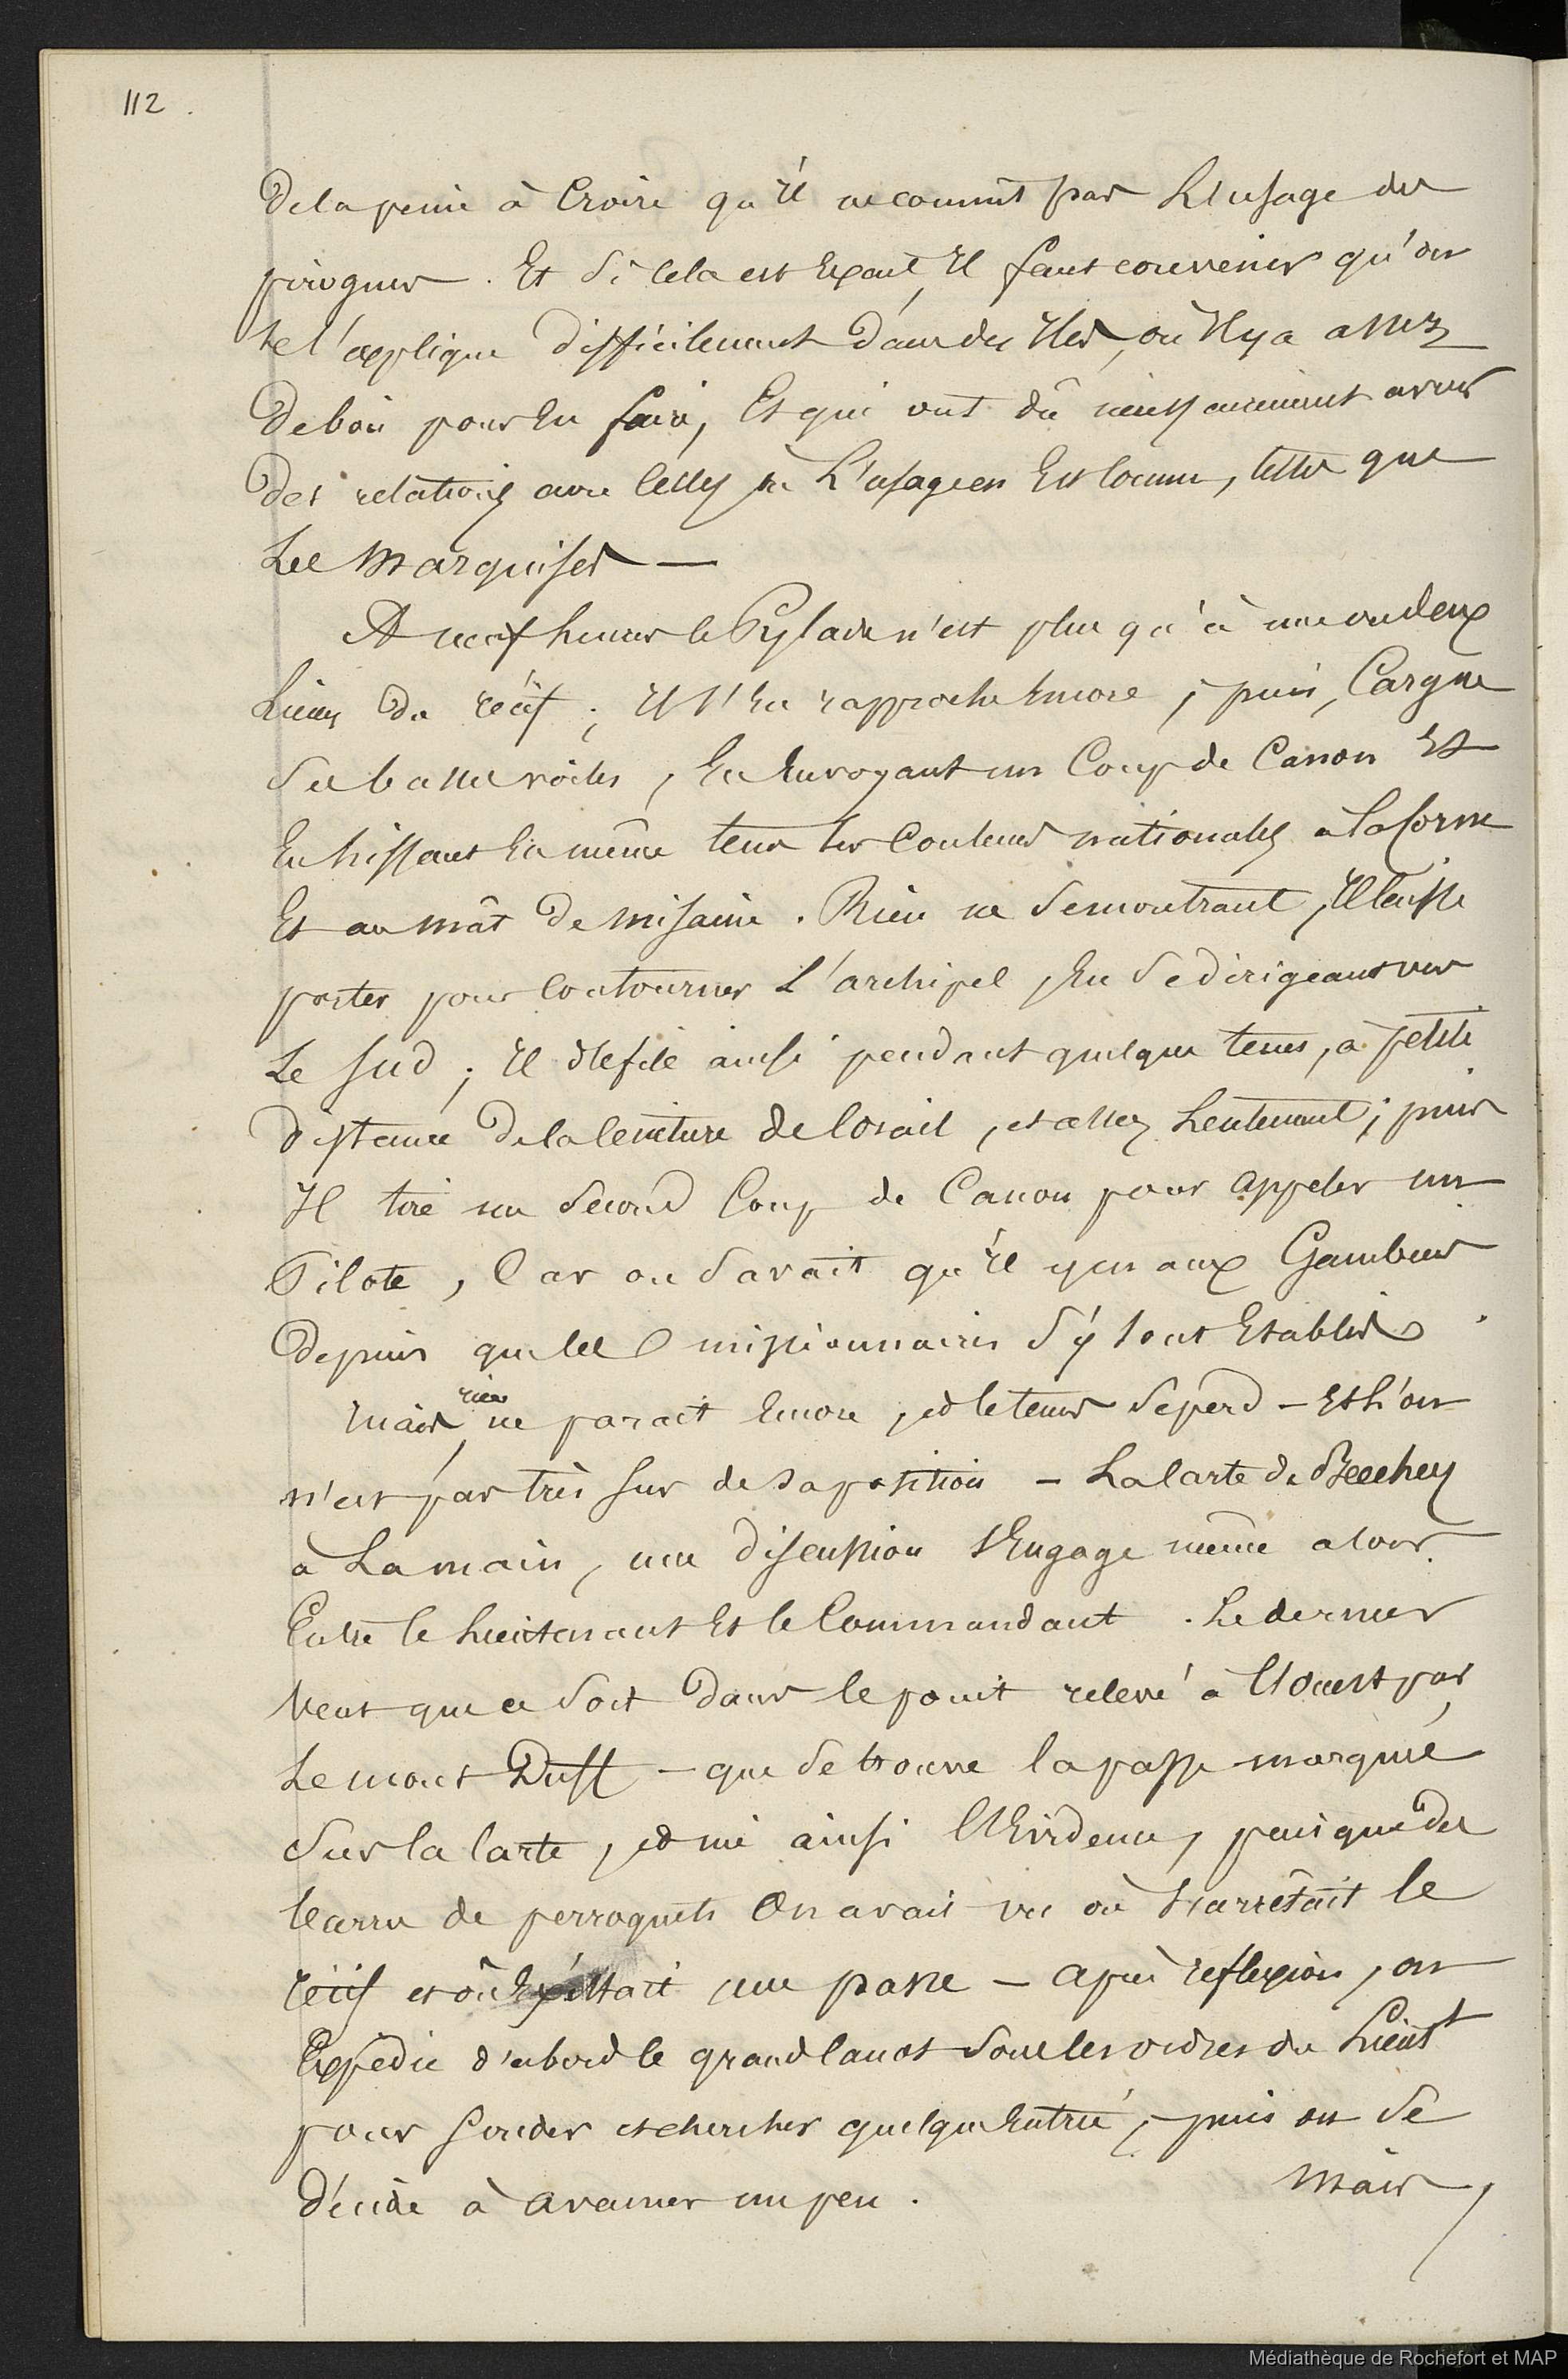 112.
De la peine à Croire qu'il ne connut pas L'usage des
pirogues. Et Si Cela est Exact, Il faut convenir qu'on
se l'explique Difficilement Dans des Iles, où Il y a assez
De bois pour En faire, Et qui ont dû nécessairement avoir
Des relations avec Celles où L'usage en Est Connu, telles que
Les Marquises —
A neuf heures le Pylade n'est plus qu'à une ou deux
Lieues Du récif ; Il S'En rapproche Encore, puis, Cargue
Ses basses voiles, En Envoyant un Coup de Canon Et
En hissant En même tems les Couleurs nationales à la Corne
Et au mât De Misaine. Rien ne Se montrant, Il laisse
porter pour Contourner L'archipel, En Se dirigeant vers
Le Sud ; Il défile ainsi pendant quelque tems, à petite
Distance De la Ceinture de Corail, et assez Lentement ; puis
Il tire un Second Coup de Canon pour appeler un
Pilote, Car on Savait qu'Il y en aux Gambier
Depuis que les missionnaires S'y sont Etablis.
Mais rien ne parait Encore, et le tems Se perd — Et L'on
n'est pas très Sur de sa position — La Carte de Beechey
à La main, une Discussion S'Engage même alors
Entre le Lieutenant Et le Commandant. Le dernier
Veut que ce Soit Dans le point relevé à L'Ouest par
Le mont Duff — que Se trouve la passe marquée
Sur la Carte, et nie ainsi L'Evidence, puisque des
barres de perroquets On avait vu où S'arrêtait le
récif et où Existait une passe — après reflexion, on
Expédie d'abord le grand Canot Sous les ordres du Lieut^t
pour Sonder et chercher quelqu'Entrée, puis on Se
Décide à avancer un peu. Mais,
Médiathèque de Rochefort et MAP